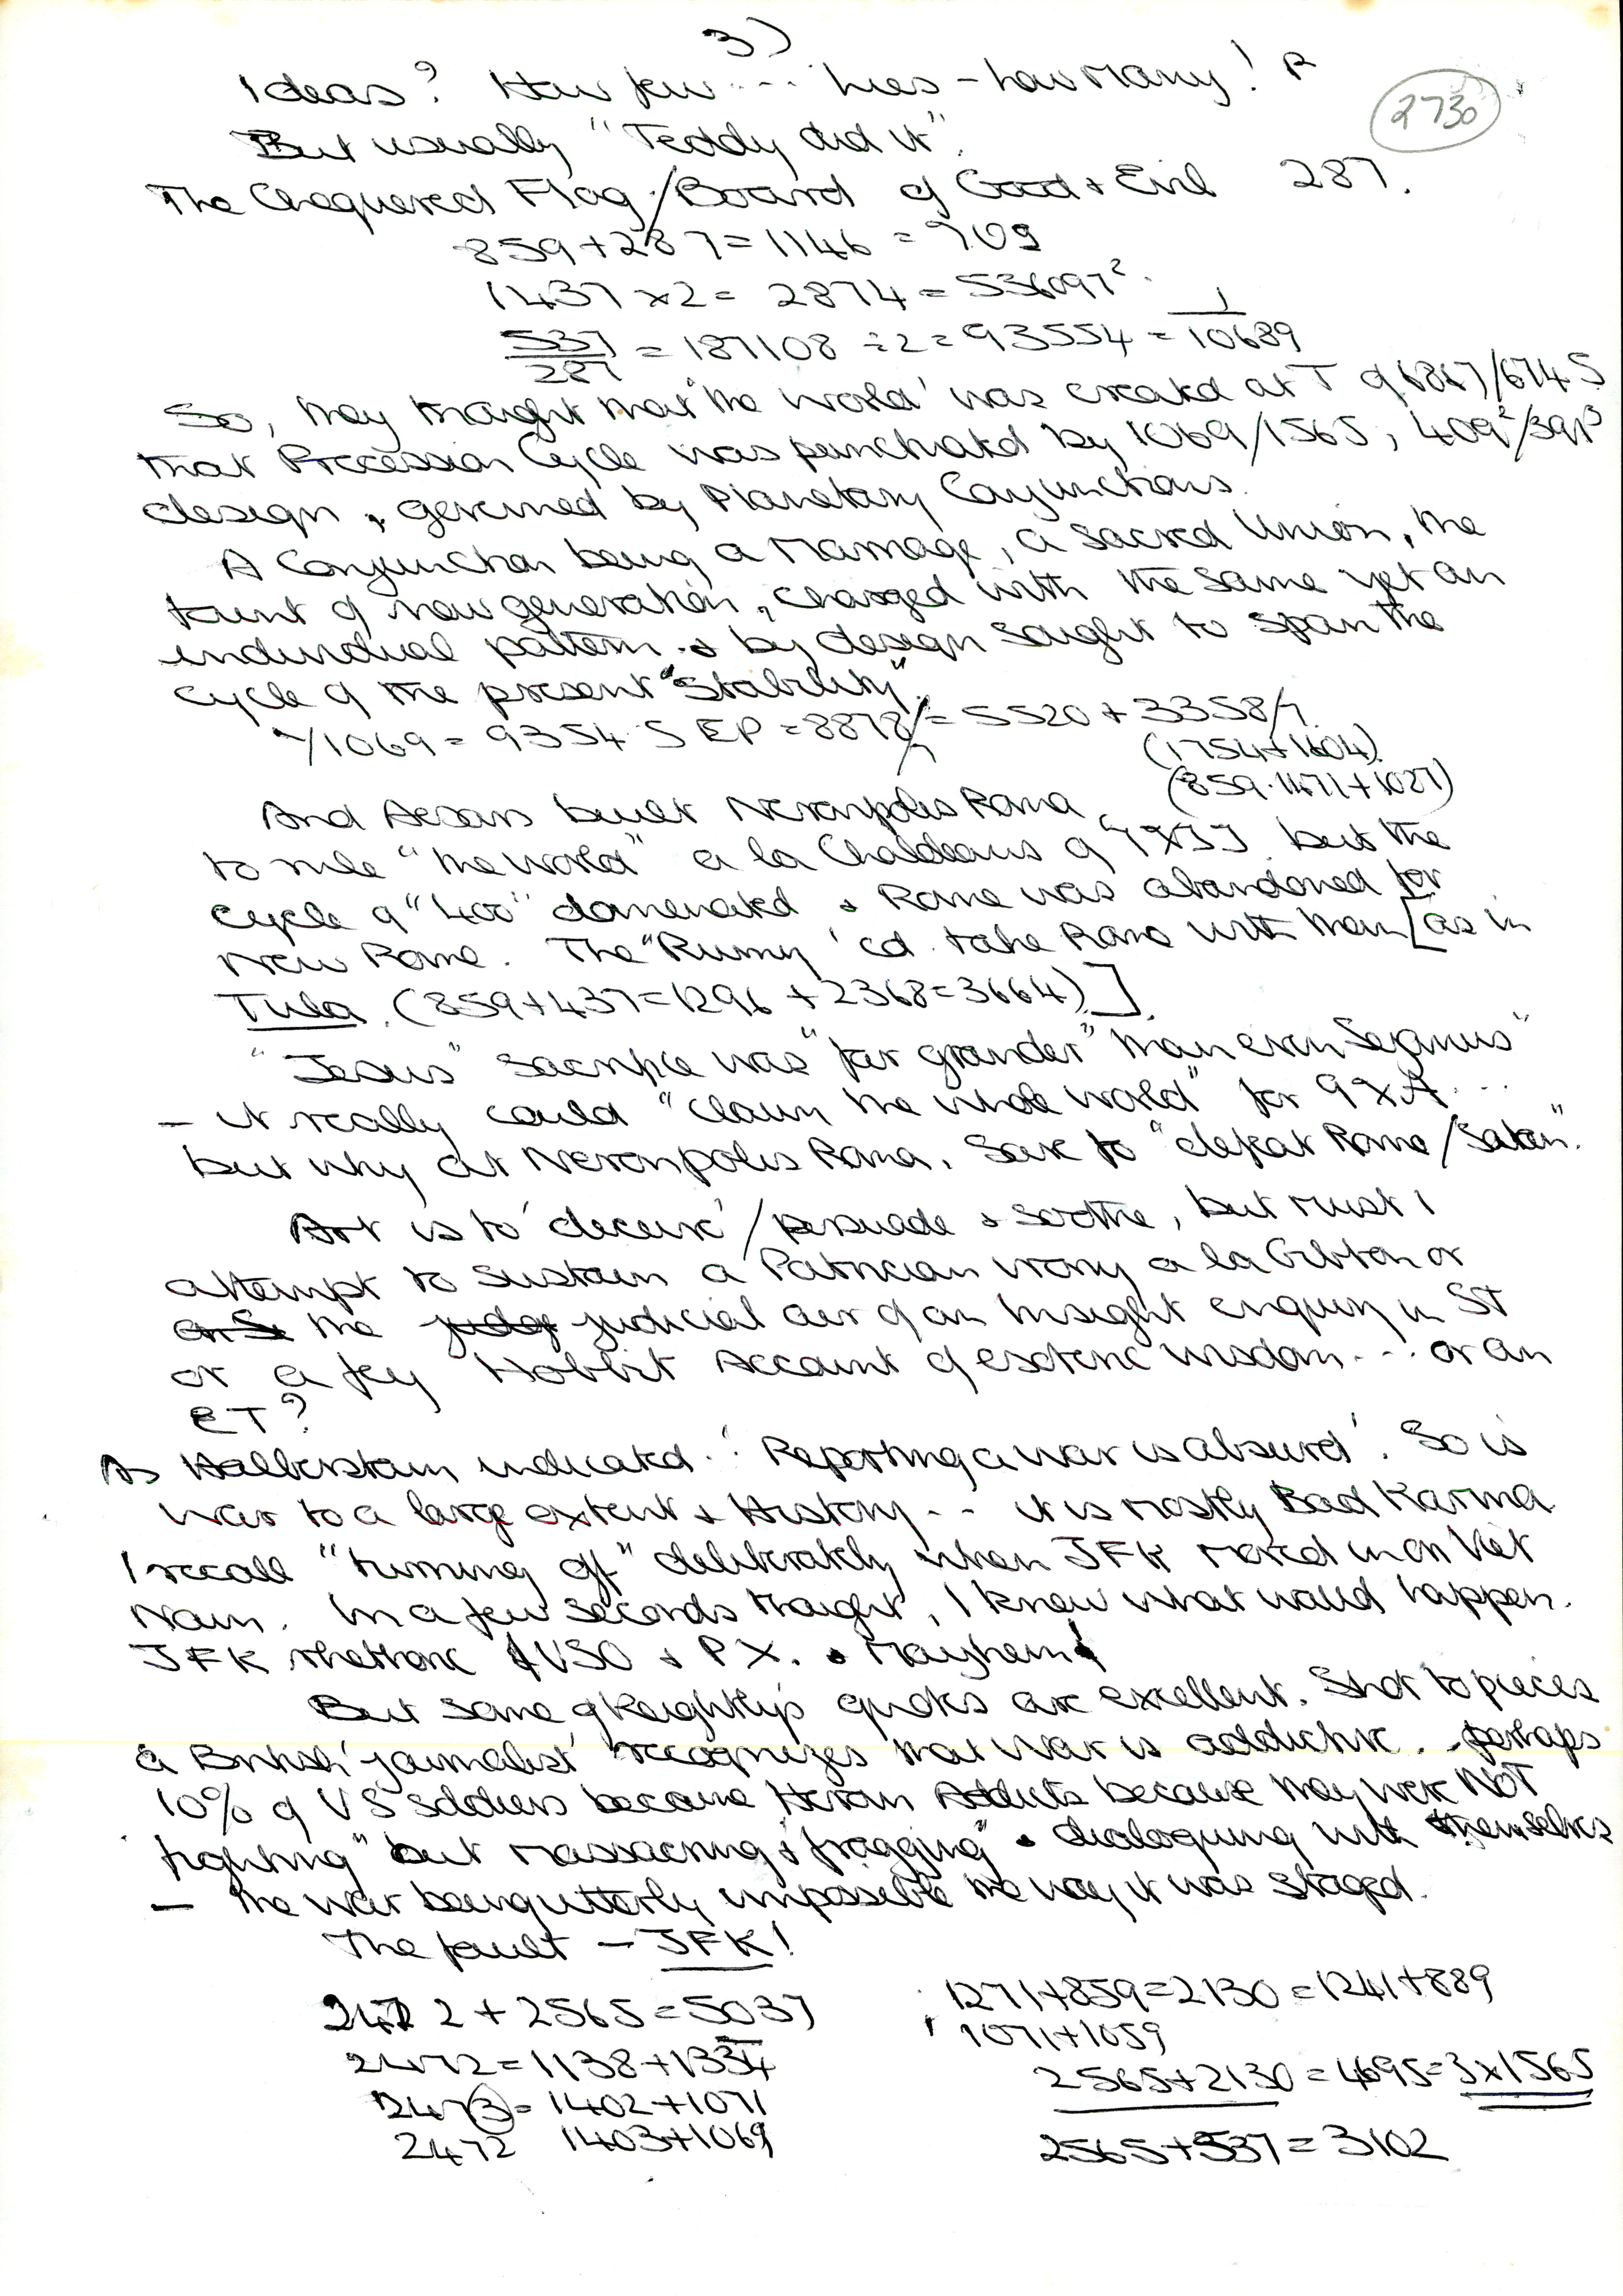 3)
Ideas? How few ... lies - how many! P
2730
But usually "Teddy did it".
The Chequered Flag/Board of Good + Evil 287.
859+287=1146 = 709
1437 x2= 2874 = 536097²
537/287 = 187108 ÷2=93554 = 1/10689
So, they thought that 'the world' was created at T of 6867/6745
that Precession Cycle was punctuated by 1069/1565, 409²/391³
design, governed by Planetary Conjunctions.
A Conjunction being a Marriage, a sacred Union, the
taint of new generation, charged with the same yet an
individual pattern & by design sought to span the
cycle of the present "Stability".
/1069 = 9354.5 EP = 8878/= 5520 + 3358/7.
(1754+1604)
(859.1471+1027)
And built Neronpolis Roma
to rule "the world" a la Chaldeans of but the
cycle of "400" dominated & Rome was abandoned for
New Rome. The "Rumy' cd. take Rome with them [as in
Tula. (859+437=1296 + 2368=3664)]
"Jesus" sacrifice was "far grander" than even Sejanus"
- it really could "claim the whole world" for 9 x A...
but why at Neronpolis Roma, save to "defeat Rome/Satan".
Art is to 'deceive'/persuade & soothe, but must I
attempt to sustain a Patrician irony a la Gibbon or
the judicial air of an Insight enquiry in ST
or a fey Hobbit Account of esoteric wisdom... or an
ET?
As Halberstam indicated. 'Reporting a war is absurd'. So is
War to a large extent & History... it is mostly Bad Karma
I recall "turning off" deliberately when JFK moved in on Viet
Nam. In a few seconds thought, I knew what would happen.
JFK rhetoric & PX. & Mayhem!
But some of Keightly's quotes are excellent. Shot to pieces
a British 'journalist' recognizes that War is addictive.. perhaps
10% of US soldiers became Heroin Addicts because they were NOT
fighting" but massacring & fragging" & dialoguing with themselves
- the war being utterly impossible the way it was staged.
The fault - JFK!
2472 + 2565 = 5037
2472 = 1138+1334
2473 = 1402+1071
2472 1403+1069
1271+859=2130 = 1241+889
1071+1059
2565+2130 = 4695=3x1565
2565+537 = 3102